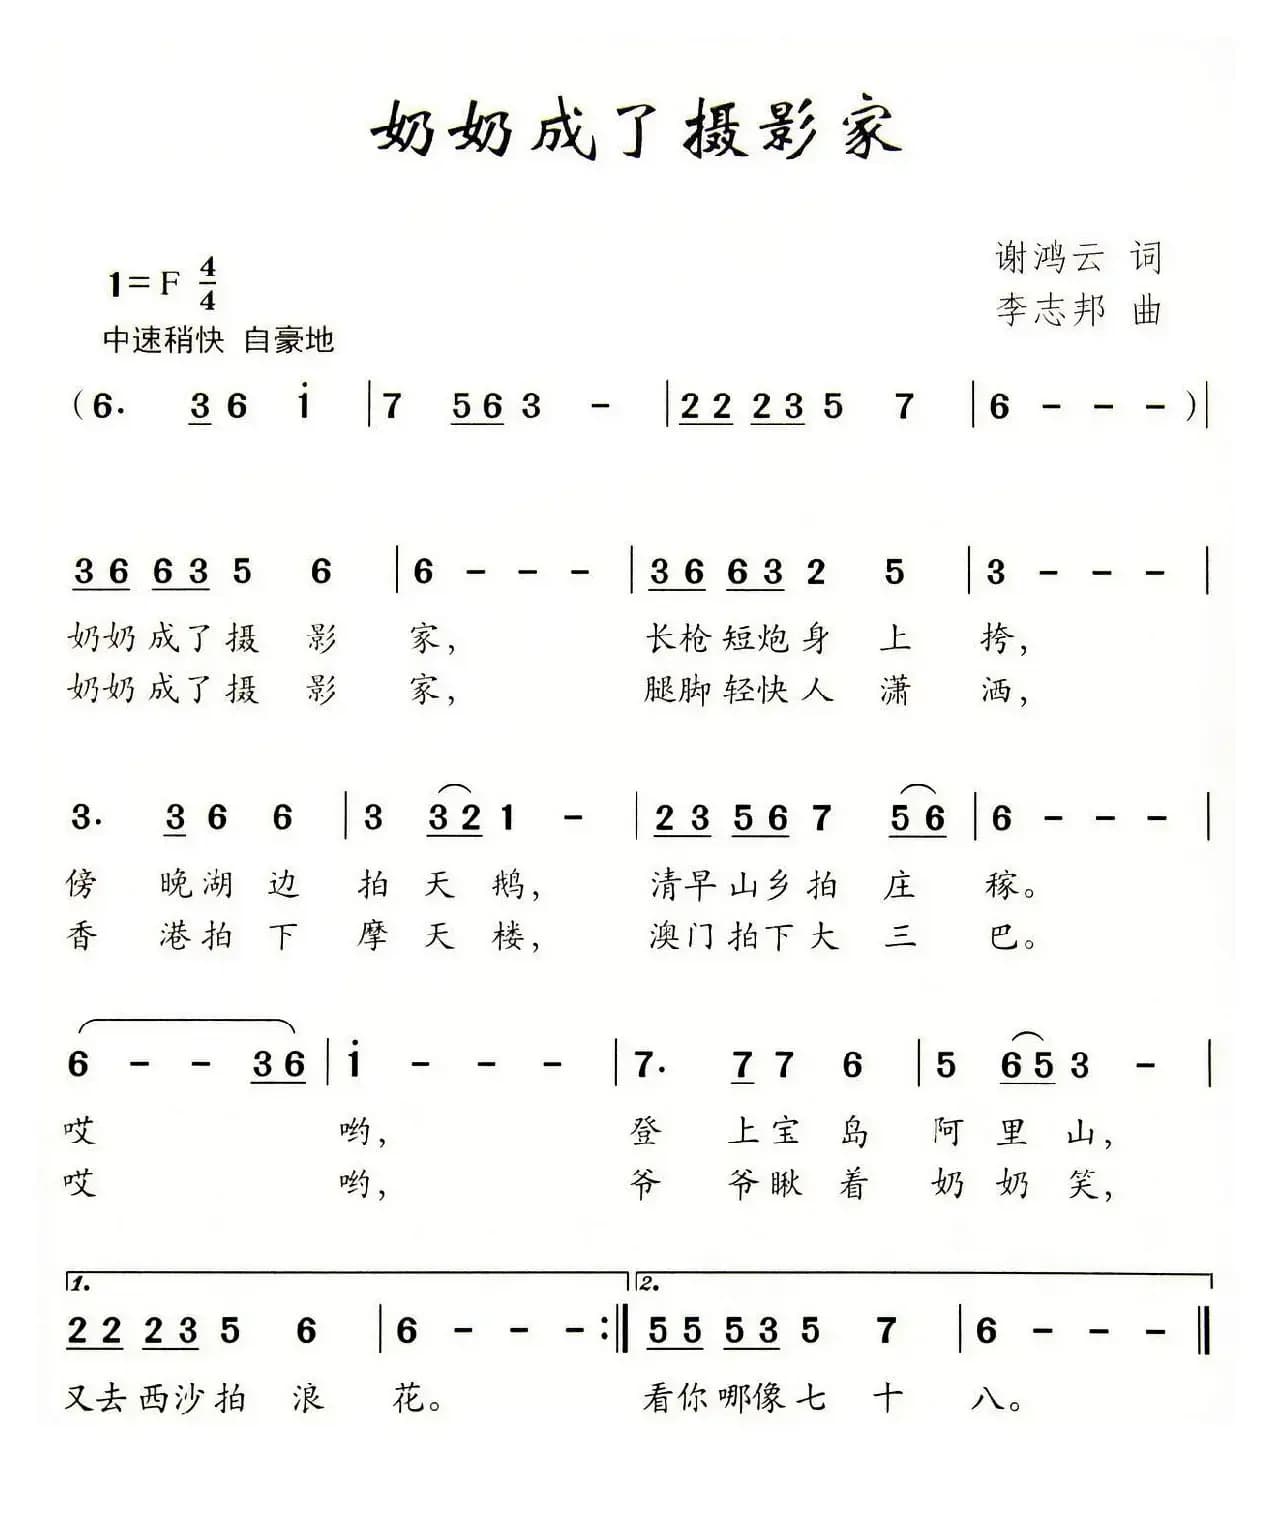 奶奶成了摄影家
谢鸿云 词
1=F 4/4
李志邦 曲
中速稍快 自豪地
(6. 3 6 i | 7 5 6 3 - | 2 2 2 3 5 7 | 6 - - - )|
3 6 6 3 5 6 | 6 - - - | 3 6 6 3 2 5 | 3 - - - |
奶奶成了摄影家, 长枪短炮身上挎,
奶奶成了摄影家, 腿脚轻快人潇洒,
3. 3 6 6 | 3 3 2 1 - | 2 3 5 6 7 5 6 | 6 - - - |
傍晚湖边拍天鹅, 清早山乡拍庄稼。
香港拍下摩天楼, 澳门拍下大三巴。
6 - - 3 6 | i - - - | 7. 7 7 6 | 5 6 5 3 - |
哎哟, 登上宝岛阿里山,
哎哟, 爷爷瞅着奶奶笑,
1. 2.
2 2 2 3 5 6 | 6 - - - :‖ 5 5 5 3 5 7 | 6 - - - ‖
又去西沙拍浪花。 看你哪像七十八。